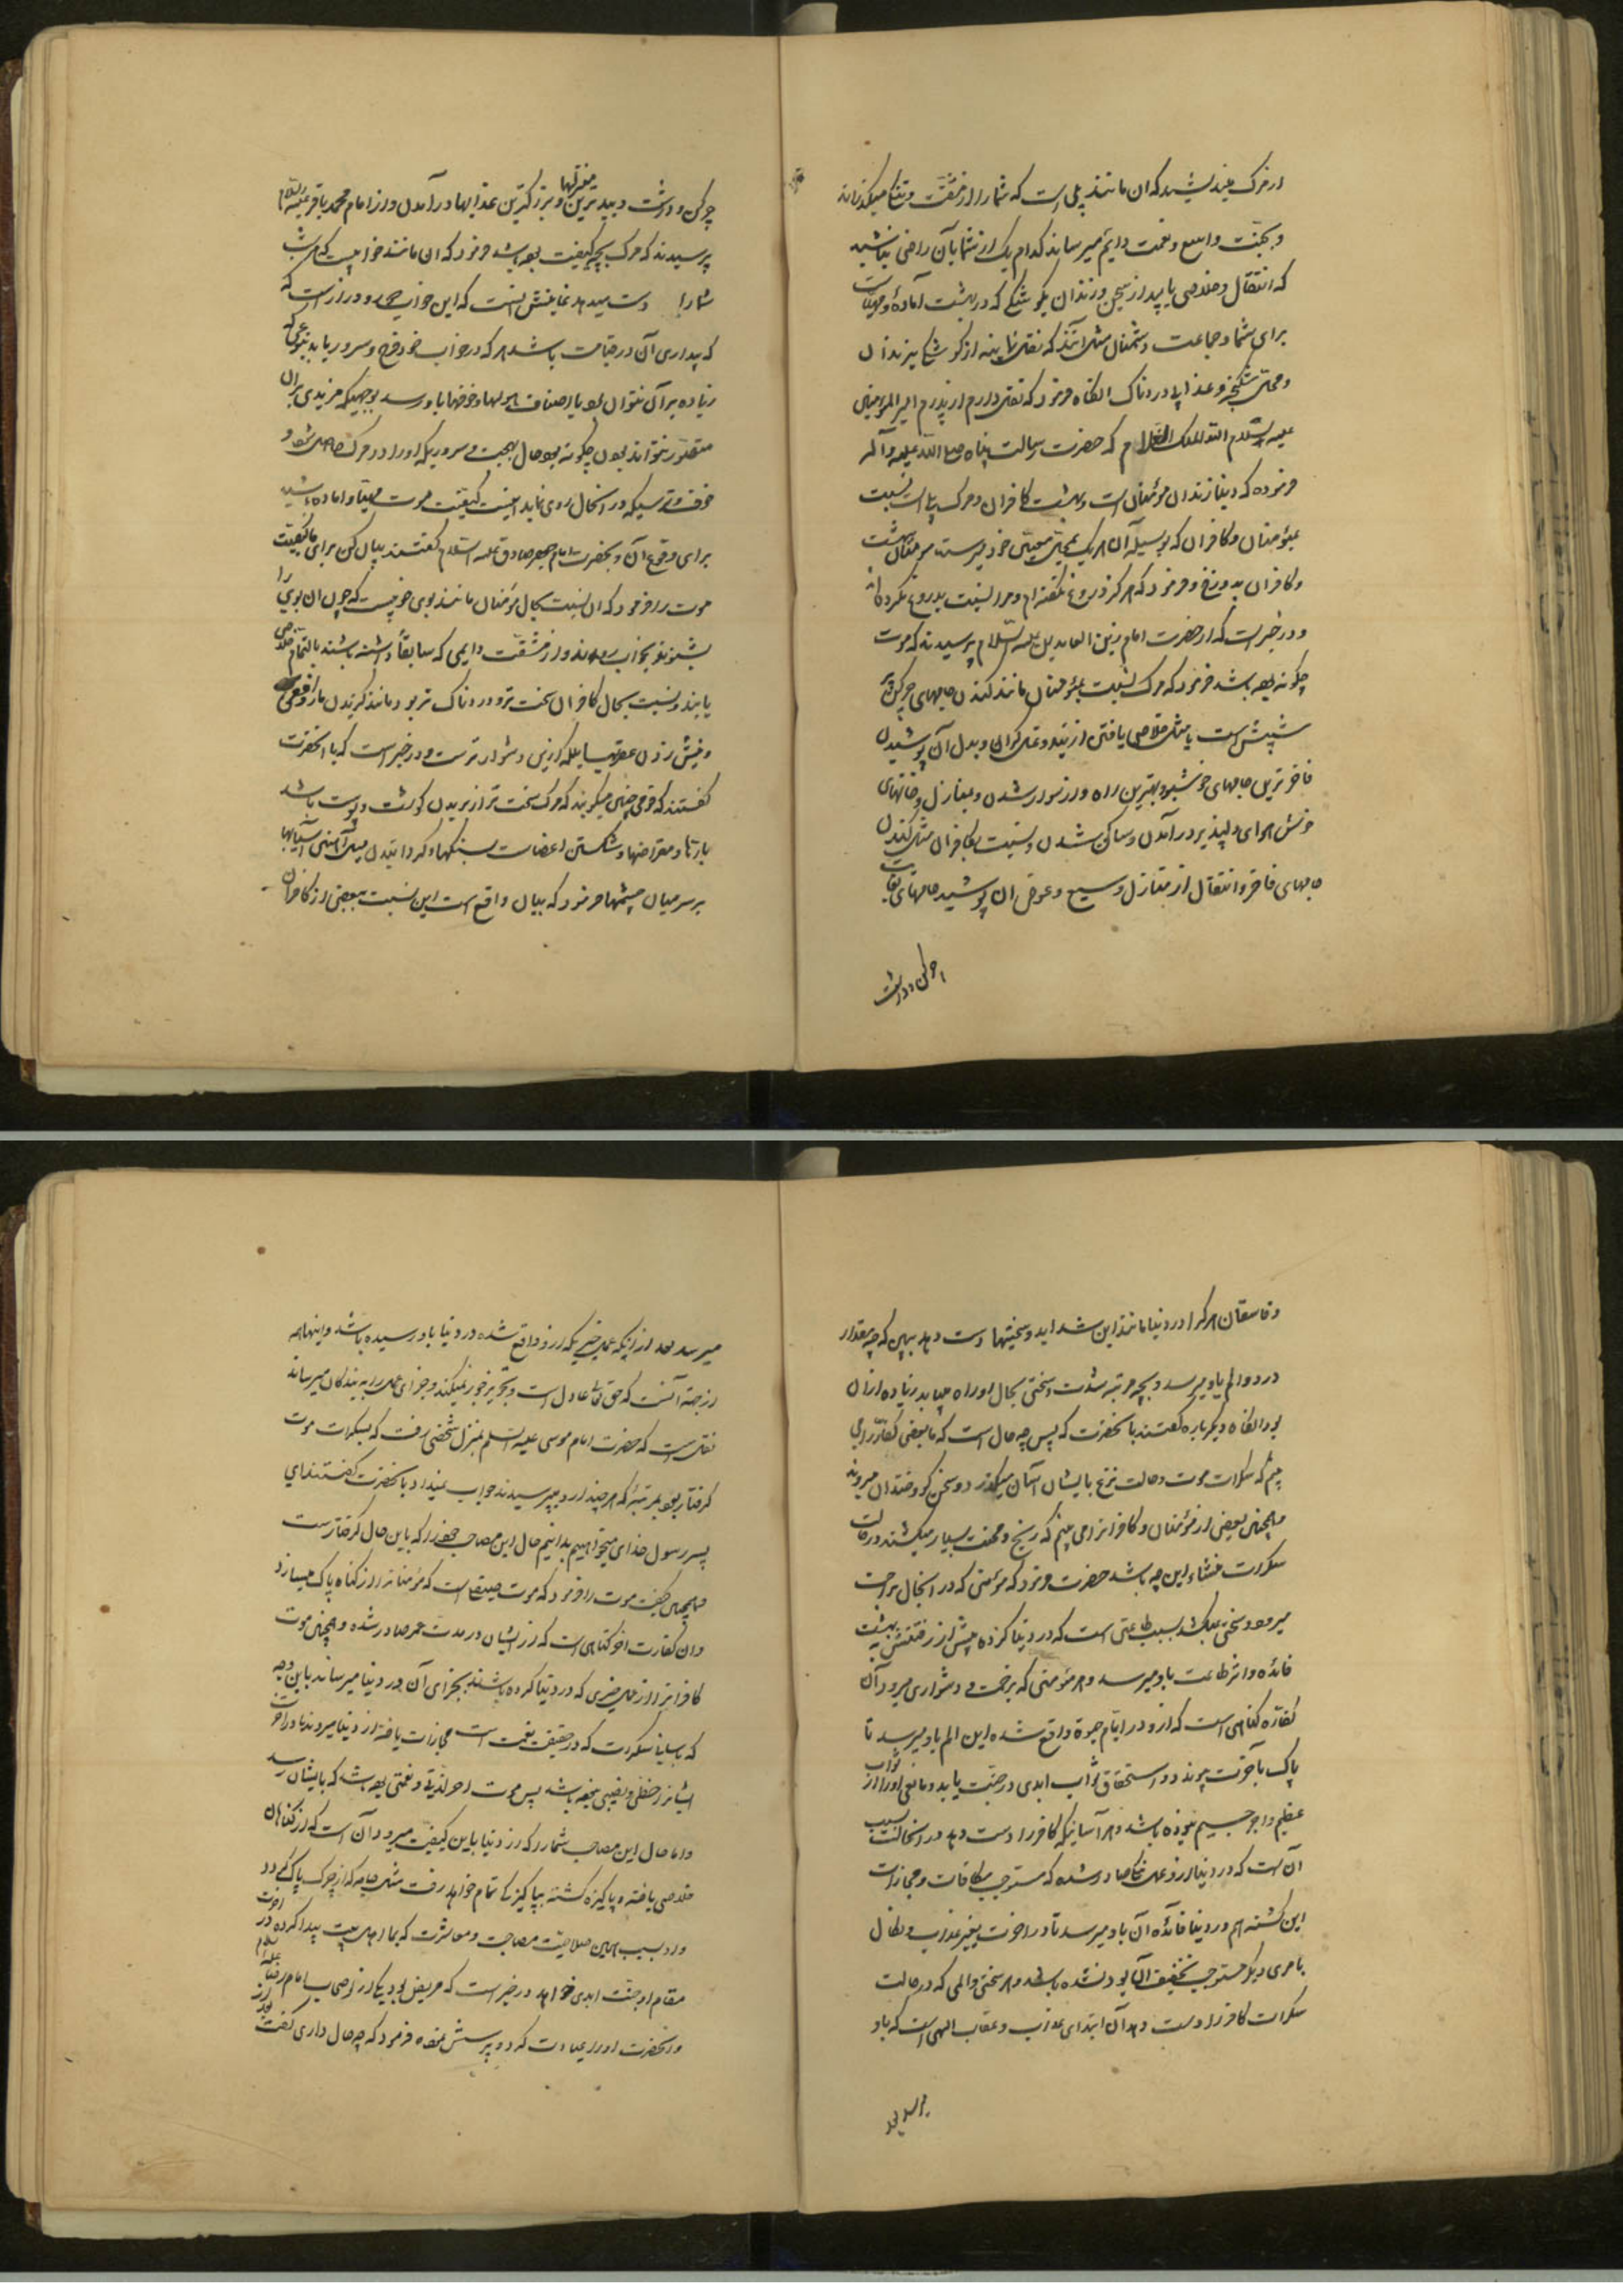 از مرگ میندیشید که ان مانند پلی است که شما را از مشقت و تنگنا میگذراند
و بجنت واسع و نعمت دایم میرساند کدام یک از شما بآن راضی نباشید
که انتقال و خلاصی یابید از سجن و زندان بکوشکی که در بهشت آماده و مهیاست
برای شما و جماعت دشمنان مثل آنند که نقل نمایند از کوشک بزندان
و محل شکنجه و عذاب دردناک انگاه فرمود که نقل دارم از پدرم امیر المؤمنین
علیه السلام الملک العلام که حضرت رسالت پناه صلی الله علیه و آله
فرموده که دنیا زندان مؤمنان است و بهشت کافران و مرگ پل است نسبت
بمؤمنان و کافران که بوسیله آن هر یک بمحل معین خود میرسند مؤمنان ببهشت
و کافران بدوزخ و فرمود که هرگز دروغ نگفته‌ام و مرا نسبت بدروغ نکرده‌اند
و در خبر است که از حضرت امام زین العابدین علیه السلام پرسیدند که موت
چگونه بوده باشد فرمود که مرگ نسبت بمؤمنان مانند کندن جامهای چرکین پر
شپش است یا مثل خلاصی یافتن از بند و غل گران و بدل آن پوشیدن
فاخرترین جامهای خوشبو و بهترین راه وار سوار شدن و بمنازل و خانهای
خوش هوای دلپذیر درآمدن و ساکن شدن و نسبت بکافران مثل کندن
جامهای فاخر و انتقال از منازل وسیع و عوض ان پوشید جامهای بغایت
چرکن و درشت
چرکن و درشت و بپدترین منزلها و بزرگترین عذابها درآمدن و از امام محمد باقر علیه السلام
پرسیدند که مرگ بچه کیفیت بوده باشد فرمود که ان مانند خوابیست که هر شب
شما را دست میدهد نهایتش اینست که این خواب دور و دراز است که
که بیداری آن در قیامت باشد هر که در خواب خود فرح و سرور یابد بنوعی که
زیاده بر آن نتوان بود یا اصناف هولها و خوفها باو رسد بوجهیکه مزیدی بر ان
متصور نتواند بود چگونه بود حال بهجت و سروریکه او را در مرگ حاصل شود و
خوف و ترسیکه در انحال روی نماید اینست کیفیت موت مهیا و اماده باشید
برای وقوع آن و بحضرت امام جعفر صادق علیه السلام گفتند بیان کن برای ما کیفیت
موت را فرمود که ان نسبت بحال مؤمنان مانند بوی خوشیست که چون ان بوی را
بشنوند بخواب روند و از مشقت دایمی که سابقا داشته باشند بالتمام خلاصی
یابند و نسبت بحال کافران سخت‌تر و دردناک‌تر بود مانند گزیدن مار افعی
و نیش زدن عقربها بلکه ازین دشوارتر ست و در خبر است که با انحضرت
گفتند که قومی چنین میگویند که مرگ سخت‌تر از بریدن گوشت و پوست باشد
باره‌ها و مقراضها و شکستن اعضاست بسنگها و گردانیدن میل آهنین آسیابها
بر سر میان چشمها فرمود که بیان واقع است این نسبت ببعضی از کافران
و فاسقان هر کرا در دنیا مانند این شداید و سختیها دست دهد ببین که چه مقدار
درد و الم باو میرسد و بچه مرتبه شدت و سختی بحال او راه میابد زیاده از ان
بود انگاه دیگر باره گفتند بانحضرت که پس چه حال است که ما بعضی کفار را می
بینم که سکرات موت و حالت نزع بایشان آسان میگذرد و سخن گو و خندان میروند
و همچنین بعضی از مؤمنان و کافرانرا می بینم که رنج و محنت بسیار میکشند در حالت
سکرات منشاء این چه باشد حضرت فرمود که مؤمنی که در انحال براحت
میرود و سختی نمیکشد بسبب طاعتی است که در دنیا کرده پیش از رفتنش به بهشت
فائده و اثر طاعت باو میرسد و هر مؤمنی که بزحمت و دشواری میرود آن
کفاره گناهی است که ازو در ایام حیوة واقع شده این الم باو میرسد تا
پاک بآخرت پیوندد و استحقاق ثواب ابدی در جنت یابد و مانعی او را از ثواب
عظیم و اجر جسیم نبوده باشد و هر آسانیکه کافر را دست دهد در انحالت سبب
آن است که در دنیا ازو عمل نیک صادر شده که مستوجب مکافات و مجازات
این گشته هم در دنیا فائده آن باو میرسد تا در اخرت بغیر عذاب و نکال
بامری دیگر مستوجب تخفیف آن بود نشده باشد و هر سختی و المی که در حالت
سکرات کافر را دست دهد آن ابتدای عذاب و عقاب الهی است که باو
میرسد بعد
میرسد بعد از اینکه عمل خیریکه ازو واقع شده در دنیا باو رسیده باشد و اینها همه
از جهة آنست که حق تعالی عادل است و تجویز جور نمیکند و جزای عمل را به بندگان میرساند
نقل است که حضرت امام موسی علیه السلم بمنزل شخصی رفت که بسکرات موت
گرفتار بود بمرتبه که هر چند ازو میپرسیدند جواب نمیداد با نحضرت گفتند ای
پسر رسول خدای میخواهیم بدانیم حال این مصاحب خود را که باین حال گرفتار ست
و همچنین کیفیت موت را فرمود که موت مصفی است که مؤمنانرا از گناه پاک میسازد
و ان کفارت اخر گناهی است که از ایشان در مدت عمر صادر شده و همچنین موت
کافرانرا از عمل خیری که در دنیا کرده باشند بجزای آن در دنیا میرساند باین وجه
که باسانی سکرات که در حقیقت نعمت است مجازات یافته از دنیا میروند تا در اخرت
ایشانرا حظی و نصیبی نبوده باشد پس موت اخر لذتی و نعمتی بوده باشد که بایشان رسد
و اما حال این مصاحب شما را که از دنیا باین کیفیت میرود آن است که از گناهان
خلاصی یافته و پاکیزه گشته بپاکیزگی تمام خواهد رفت مثل جامه که از چرک پاک گردد
و از بسبب همین صلاحیت مصاحبت و معاشرت که بما اهل بیت پیدا کرده در اخرت
مقام او جنت ابدی خواهد در خبر است که مریض بود یکی از اصحاب امام رضا علیه السلام
و انحضرت او را عیادت کرد و پرسش نموده فرمود که چه حال داری گفت بعد از